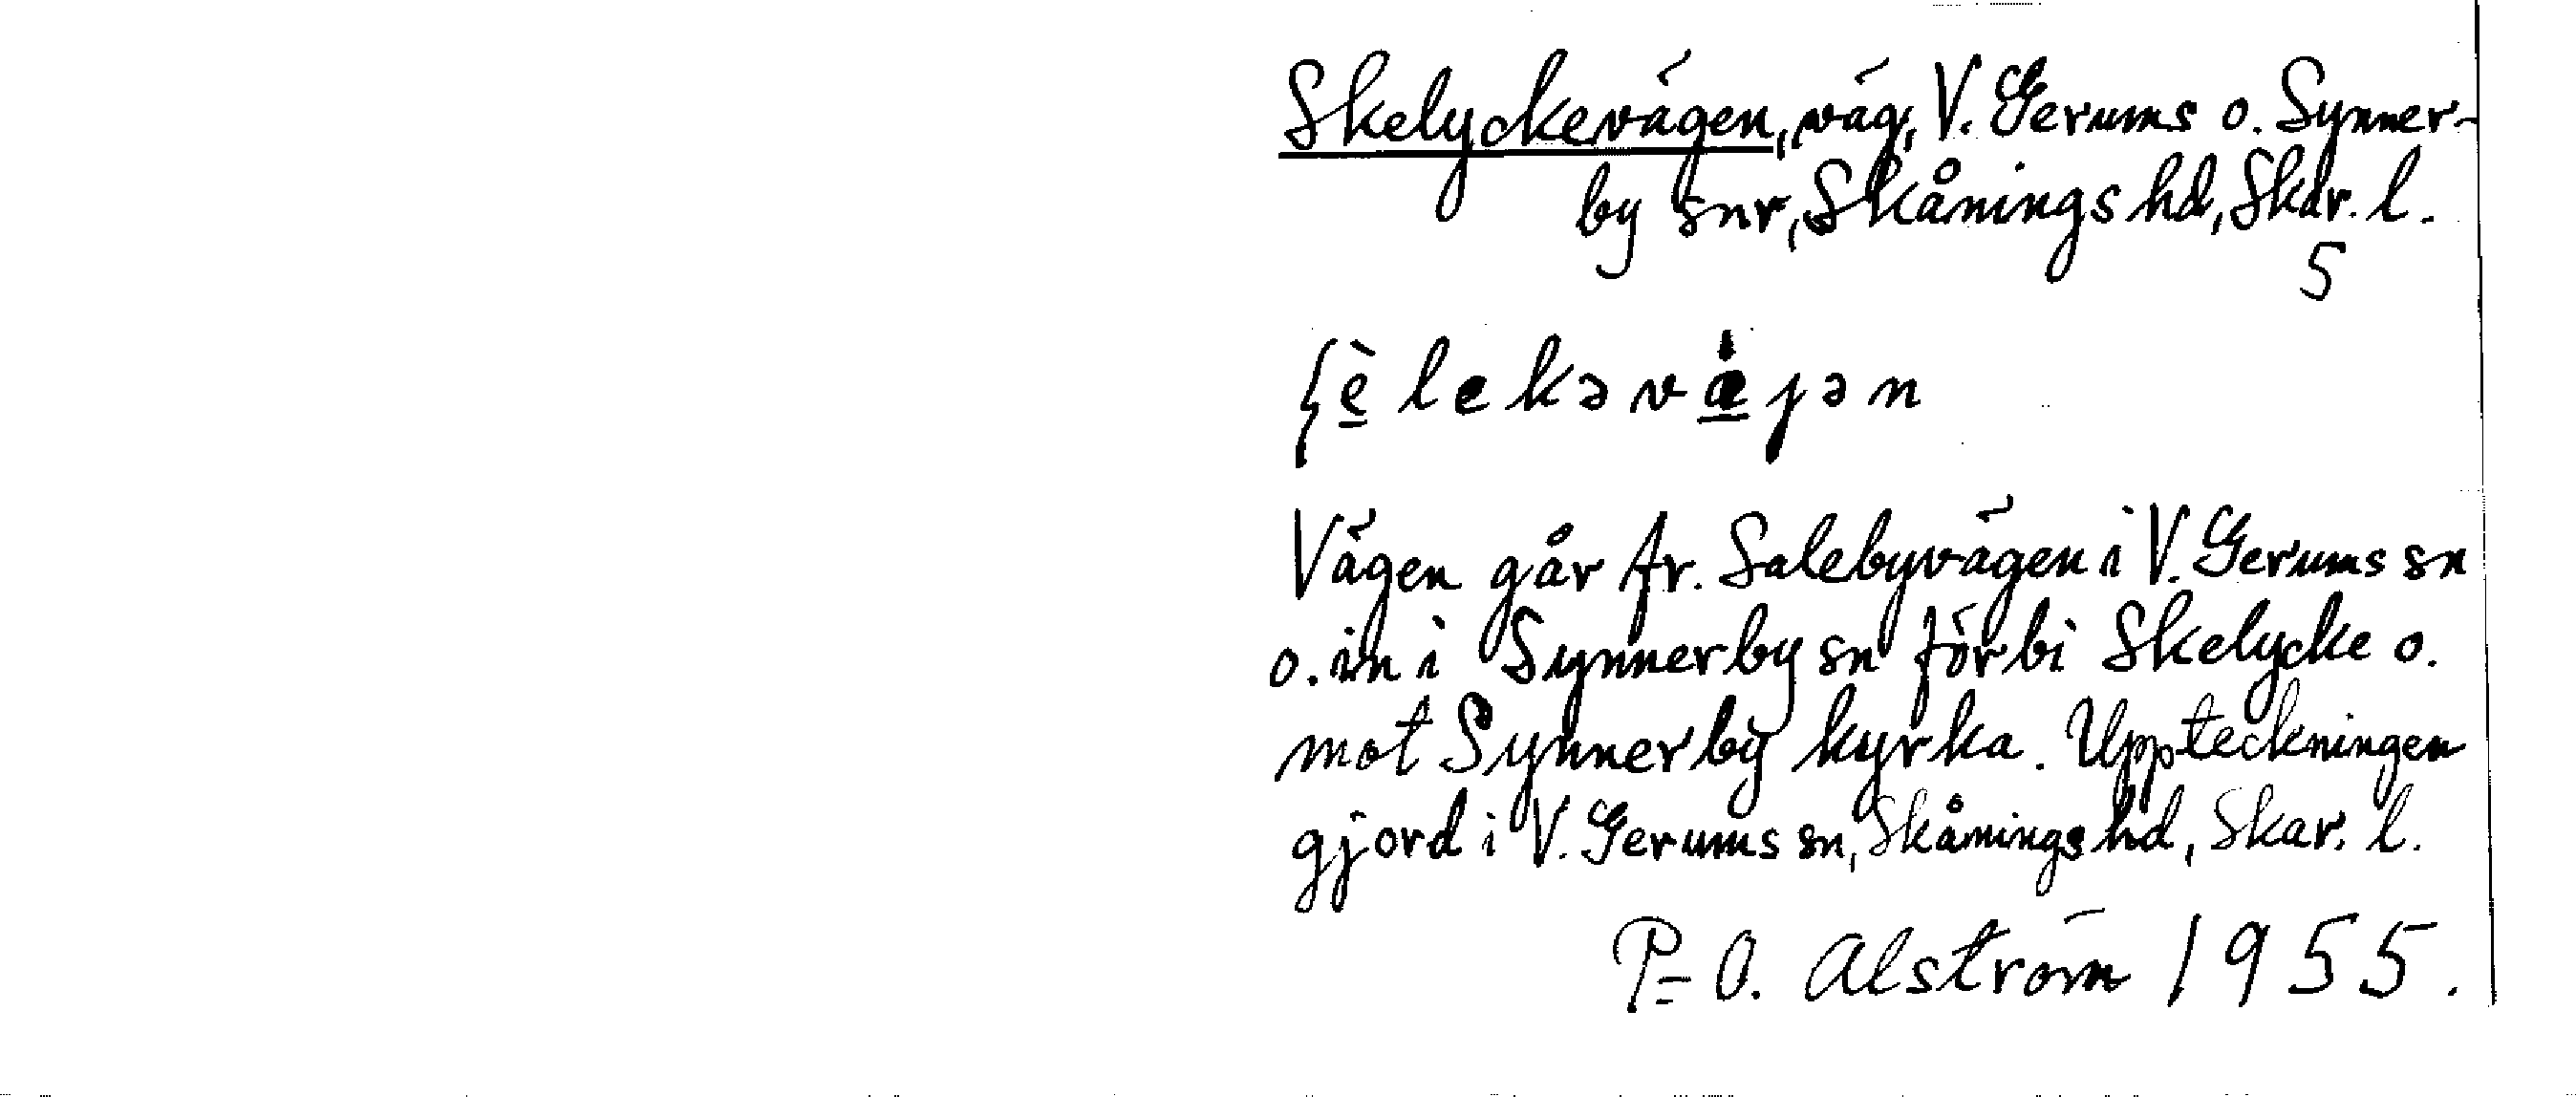 Skelyckevägen, väg, V. Gerums o. Synner-
by snr, Skånings hd, Skar. l.
5
ʃè̠lekəvæ̠jən
Vägen går fr. Salebyvägen i V. Gerums sn
o. in i Synnerby sn förbi Skelycke o.
mot Synnerby kyrka. Uppteckningen
gjord i V. Gerums sn, Skånings hd, Skar. l.
P-O. Alström 1955.